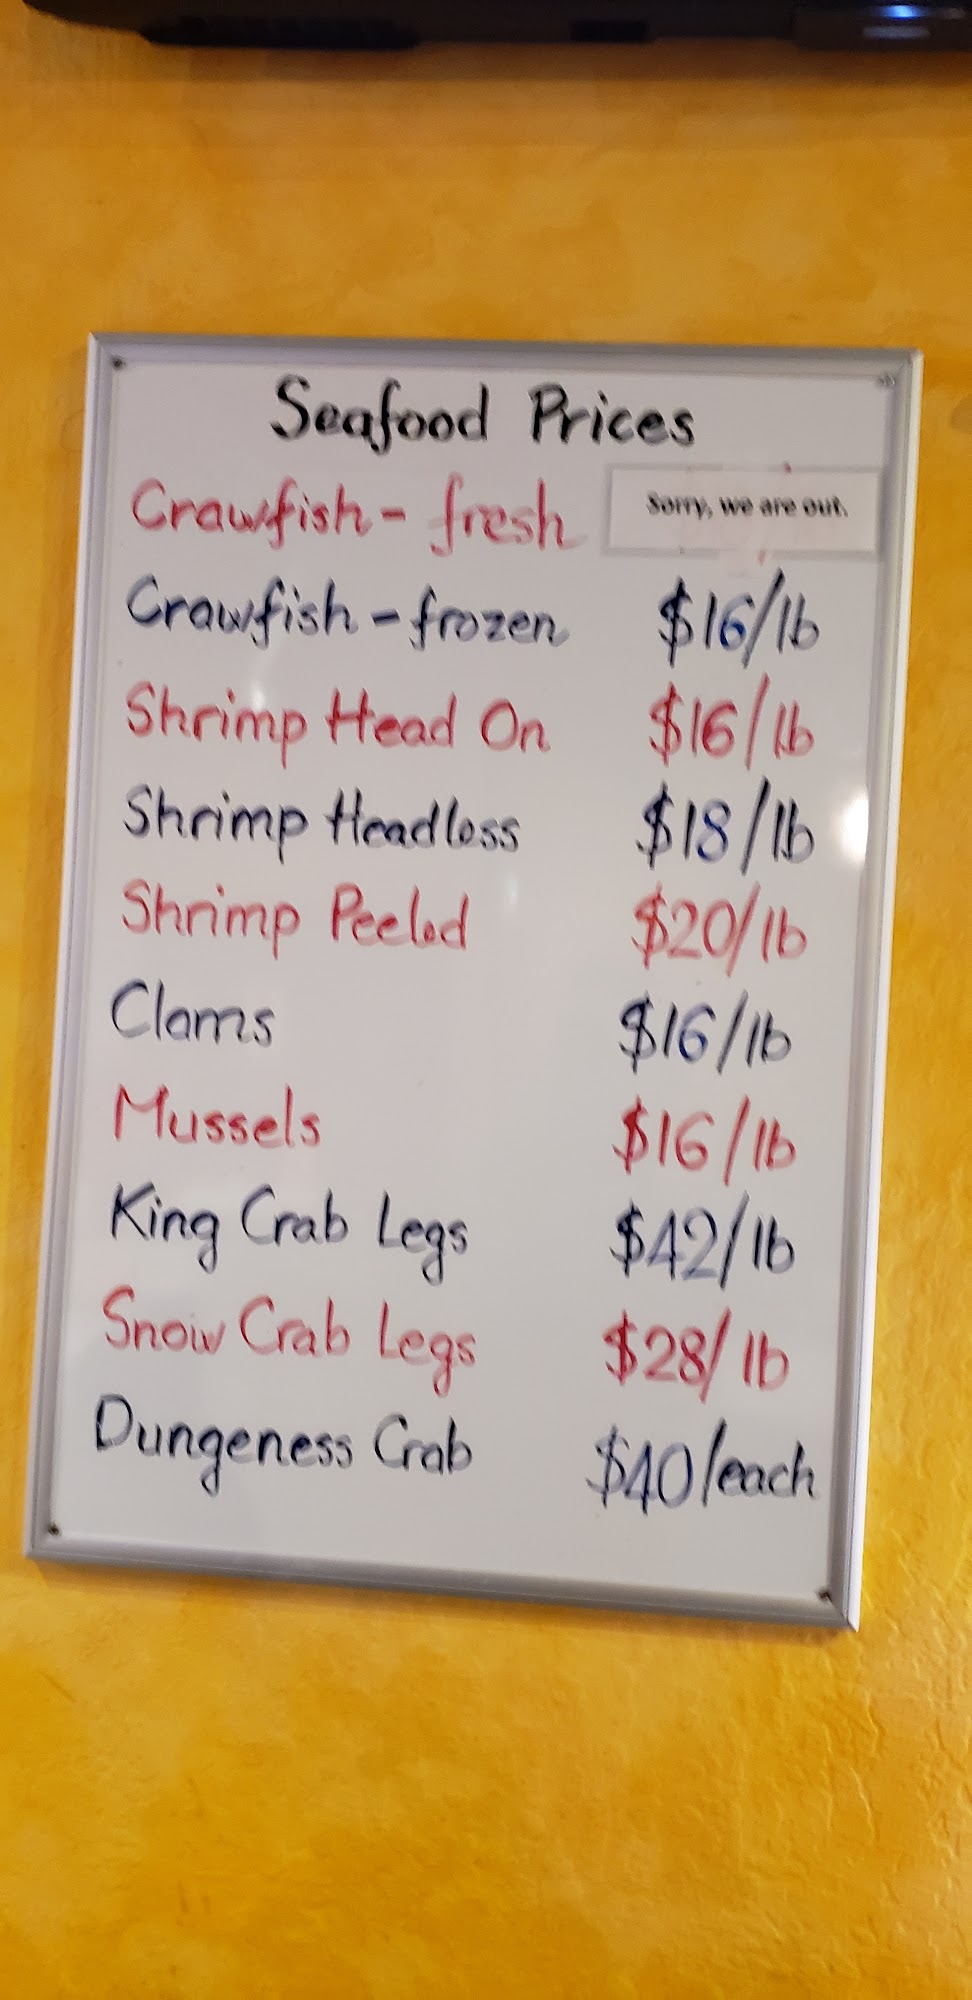 Seafood Prices
Crawfish - fresh Sorry, we are out.
Crawfish - frozen $16/lb
Shrimp Head On $16/lb
Shrimp Headless $18/lb
Shrimp Peeled $20/lb
Clams $16/lb
Mussels $16/lb
King Crab Legs $42/lb
Snow Crab Legs $28/lb
Dungeness Crab $40/each